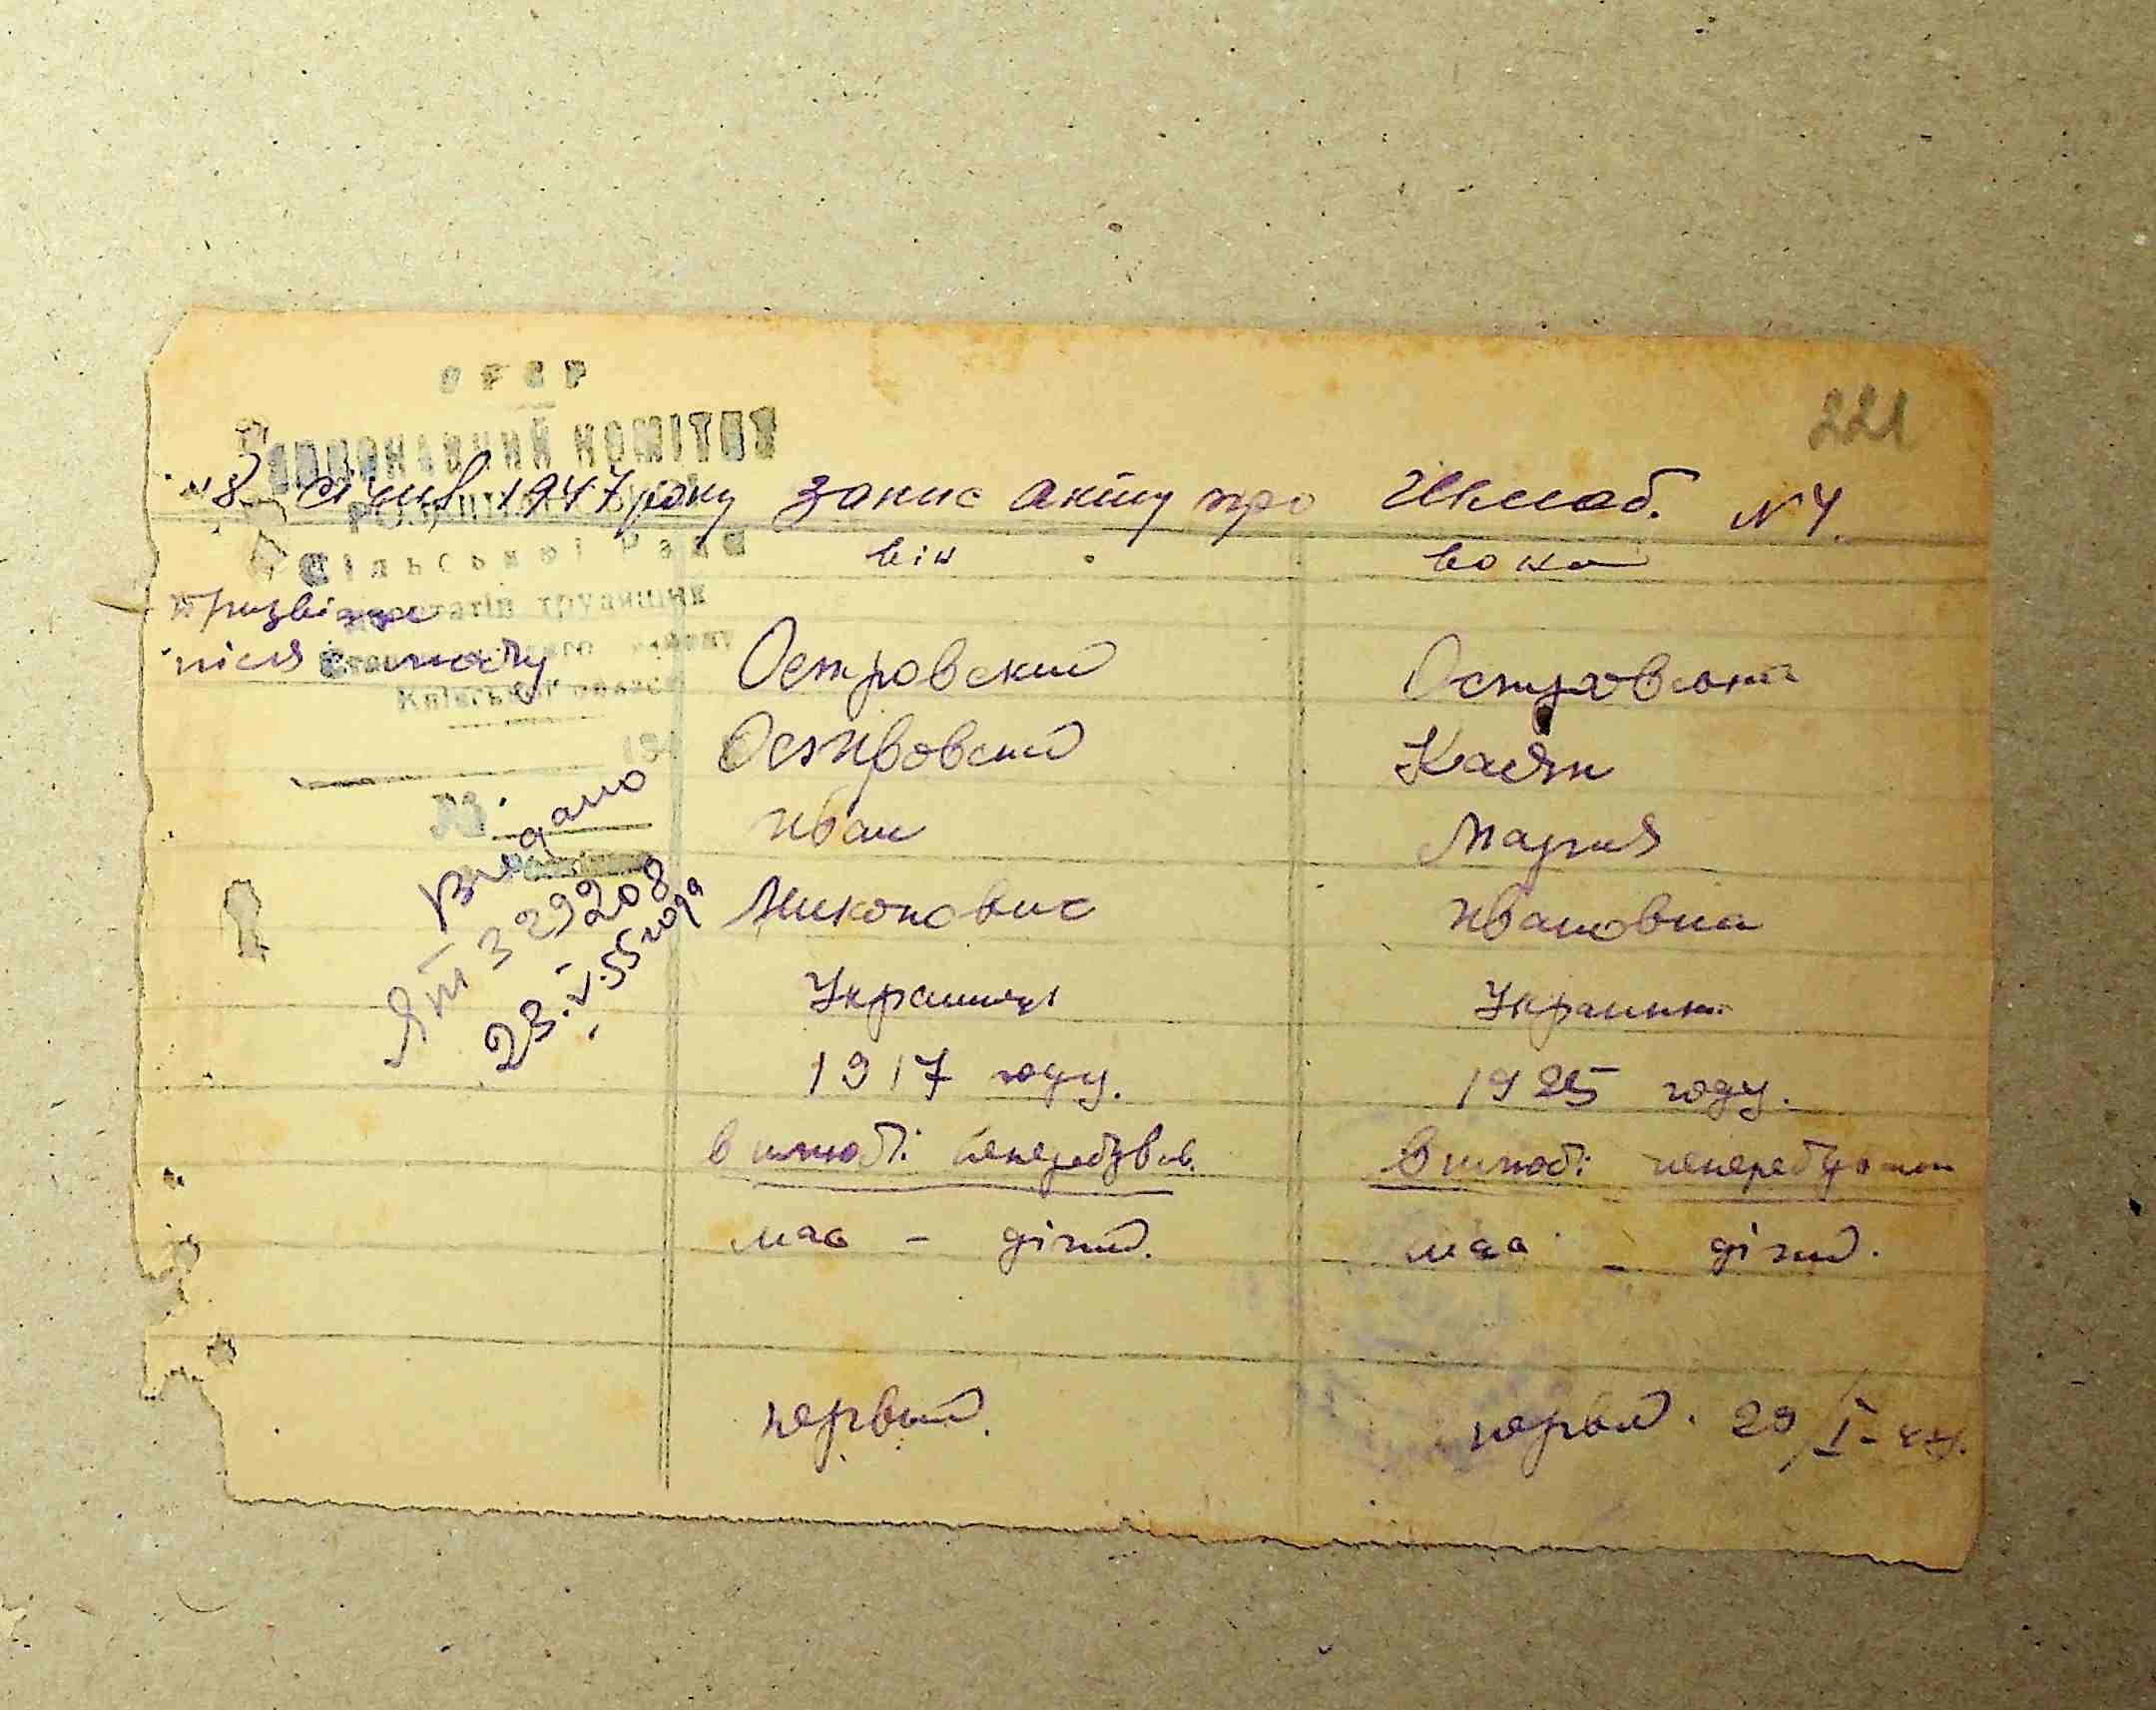 221
УРСР
ВИКОНАВЧИЙ КОМІТЕТ
Сільської Ради
депутатів трудящих
Київської области
194
№
8 січня 1947 року запис акту про Шлюб. № 4.
він вона
прізвіще
після шлюбу Островский Островская
Островский Касян
Иван Мария
Никонович Ивановна
Украинец Украинка
1917 году. 1925 году.
в шлюбі неперебував. В шлюбі неперебувала
має - дітий. має - дітий.
первый. первый. 29/I-47.
Видано
329208
23.V.55 года